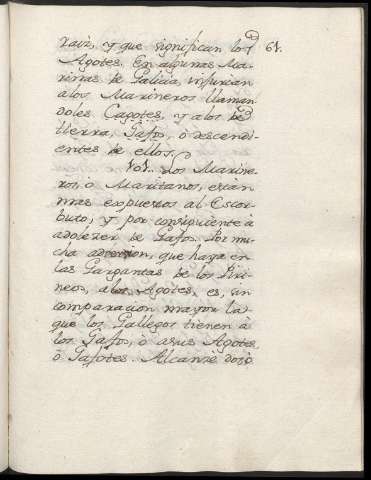 raiz, y que significan los 61.
Agotes. En algunas Ma-
rinas de Galicia, injurian
a los Marineros llaman
doles Cagotes, y a los de
tierra, Gafos, ò descendi-
entes de ellos.
Los Marine-
ros, ò Maritanos, estan
mas expuestos al Escor-
buto, y por consiguiente à
adolezer de Gafos. Por mu-
cha adversion, que haya en
las Gargantas de los Piri-
neos, a los Agotes, es, in
comparacion mayor la
que los Gallegos tienen à
los Gafos, ò a sus Agotes,
ò Gafotes. Alcanzè dos, ò